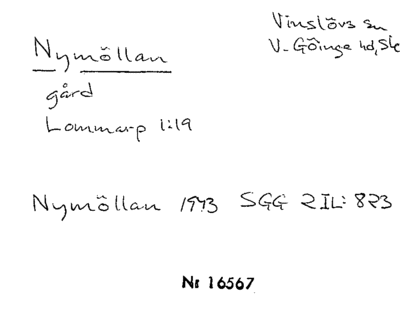 Nymöllan
Vinslövs sn
V. Göinge hd, Sk
gård
Lommarp 1:19
Nymöllan 1943 SGG 2 IL: 823
Nr 16567